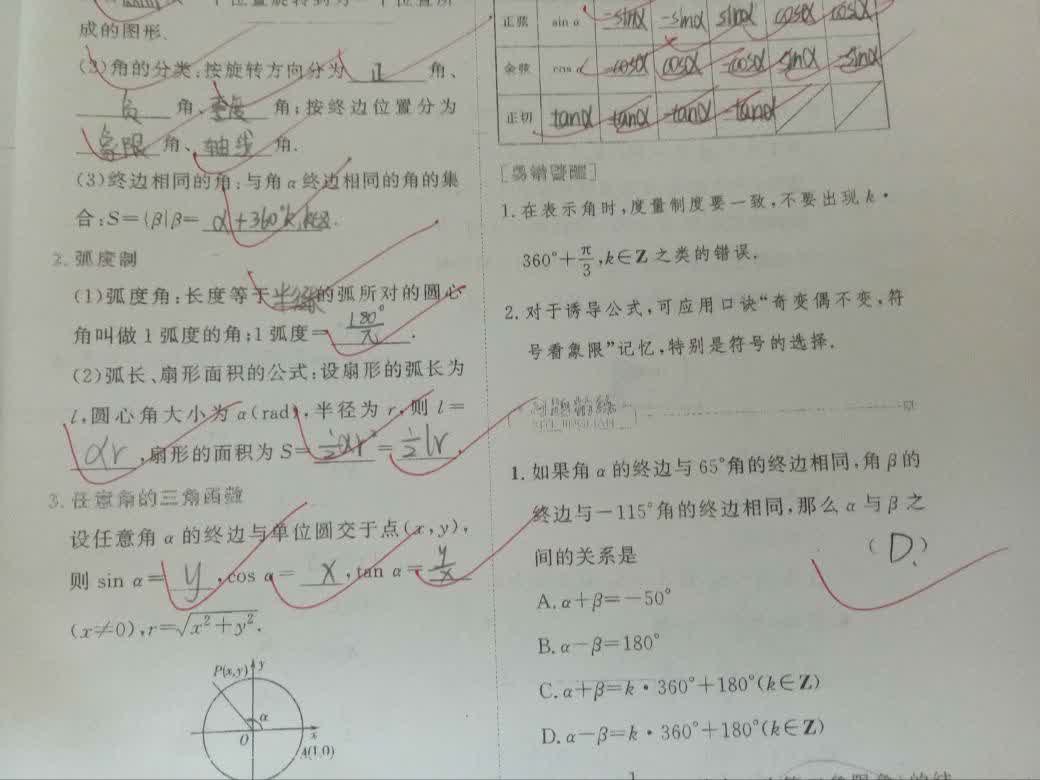 成的图形.
(2)角的分类:按旋转方向分为 正 角、
负 角、零度 角;按终边位置分为
象限 角、轴线 角.
(3)终边相同的角:与角α终边相同的角的集
合:S={β|β= α+360°k,k∈Z.
2.弧度制
(1)弧度角:长度等于半径的弧所对的圆心
角叫做1弧度的角;1弧度= 180°/π .
(2)弧长、扇形面积的公式:设扇形的弧长为
l,圆心角大小为α(rad),半径为r,则l=
αr ,扇形的面积为S= 1/2 αr² = 1/2 lr .
3.任意角的三角函数
设任意角α的终边与单位圆交于点(x,y),
则 sin α= y ,cos α= x ,tan α= y/x
(x≠0),r=√(x²+y²).
P(x,y) y
α
O x
A(1,0)
正弦 sin α -sinα -sinα sinα cosα cosα
余弦 cos α -cosα cosα -cosα sinα -sinα
正切 tanα tanα -tanα -tanα
[易错警醒]
1.在表示角时,度量制度要一致,不要出现k·
360°+π/3,k∈Z之类的错误.
2.对于诱导公式,可应用口诀“奇变偶不变,符
号看象限”记忆,特别是符号的选择.
1.如果角α的终边与65°角的终边相同,角β的
终边与-115°角的终边相同,那么α与β之
间的关系是 ( D. )
A.α+β=-50°
B.α-β=180°
C.α+β=k·360°+180°(k∈Z)
D.α-β=k·360°+180°(k∈Z)